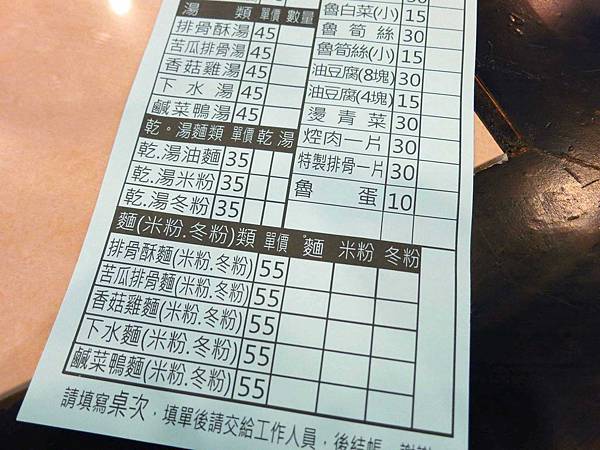 湯 類 單價 數量
排骨酥湯 45
苦瓜排骨湯 45
香菇雞湯 45
下水湯 45
鹹菜鴨湯 45
乾。湯麵類 單價 乾 湯
乾.湯油麵 35
乾.湯米粉 35
乾.湯冬粉 35
魯白菜(小) 15
魯筍絲 30
魯筍絲(小) 15
油豆腐(8塊) 30
油豆腐(4塊) 15
燙青菜 30
焢肉一片 30
特製排骨一片 30
魯蛋 10
麵(米粉.冬粉)類 單價 麵 米粉 冬粉
排骨酥麵(米粉.冬粉) 55
苦瓜排骨麵(米粉.冬粉) 55
香菇雞麵(米粉.冬粉) 55
下水麵(米粉.冬粉) 55
鹹菜鴨麵(米粉.冬粉) 55
請填寫桌次，填單後請交給工作人員，後結帳